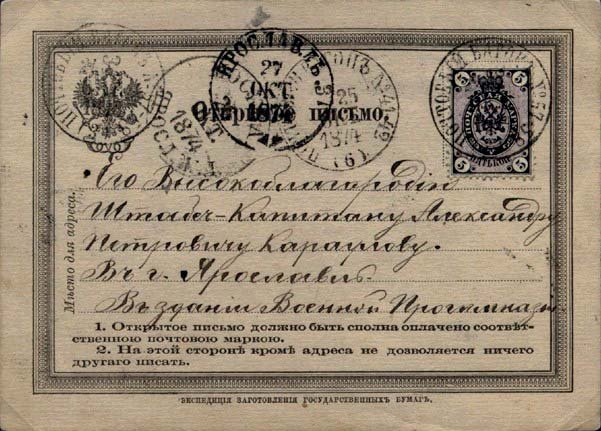 ЯРОСЛАВЛЬ
27
ОКТ.
1874
25
1874
(6)
ПОЧТОВЫЙ ВАГОНЪ № 57
5 5
ПЯТЬ КОП
5 5
Открытое письмо.
Мѣсто для адреса:
Его Высокоблагородію
Штабсъ-Капитану Александру
Петровичу Караулову.
Въ г. Ярославль
Въ зданіи Военной Прогимназіи
1. Открытое письмо должно быть сполна оплачено соотвѣт-
ственною почтовою маркою.
2. На этой сторонѣ кромѣ адреса не дозволяется ничего
другаго писать.
ЭКСПЕДИЦІЯ ЗАГОТОВЛЕНІЯ ГОСУДАРСТВЕННЫХЪ БУМАГЪ.